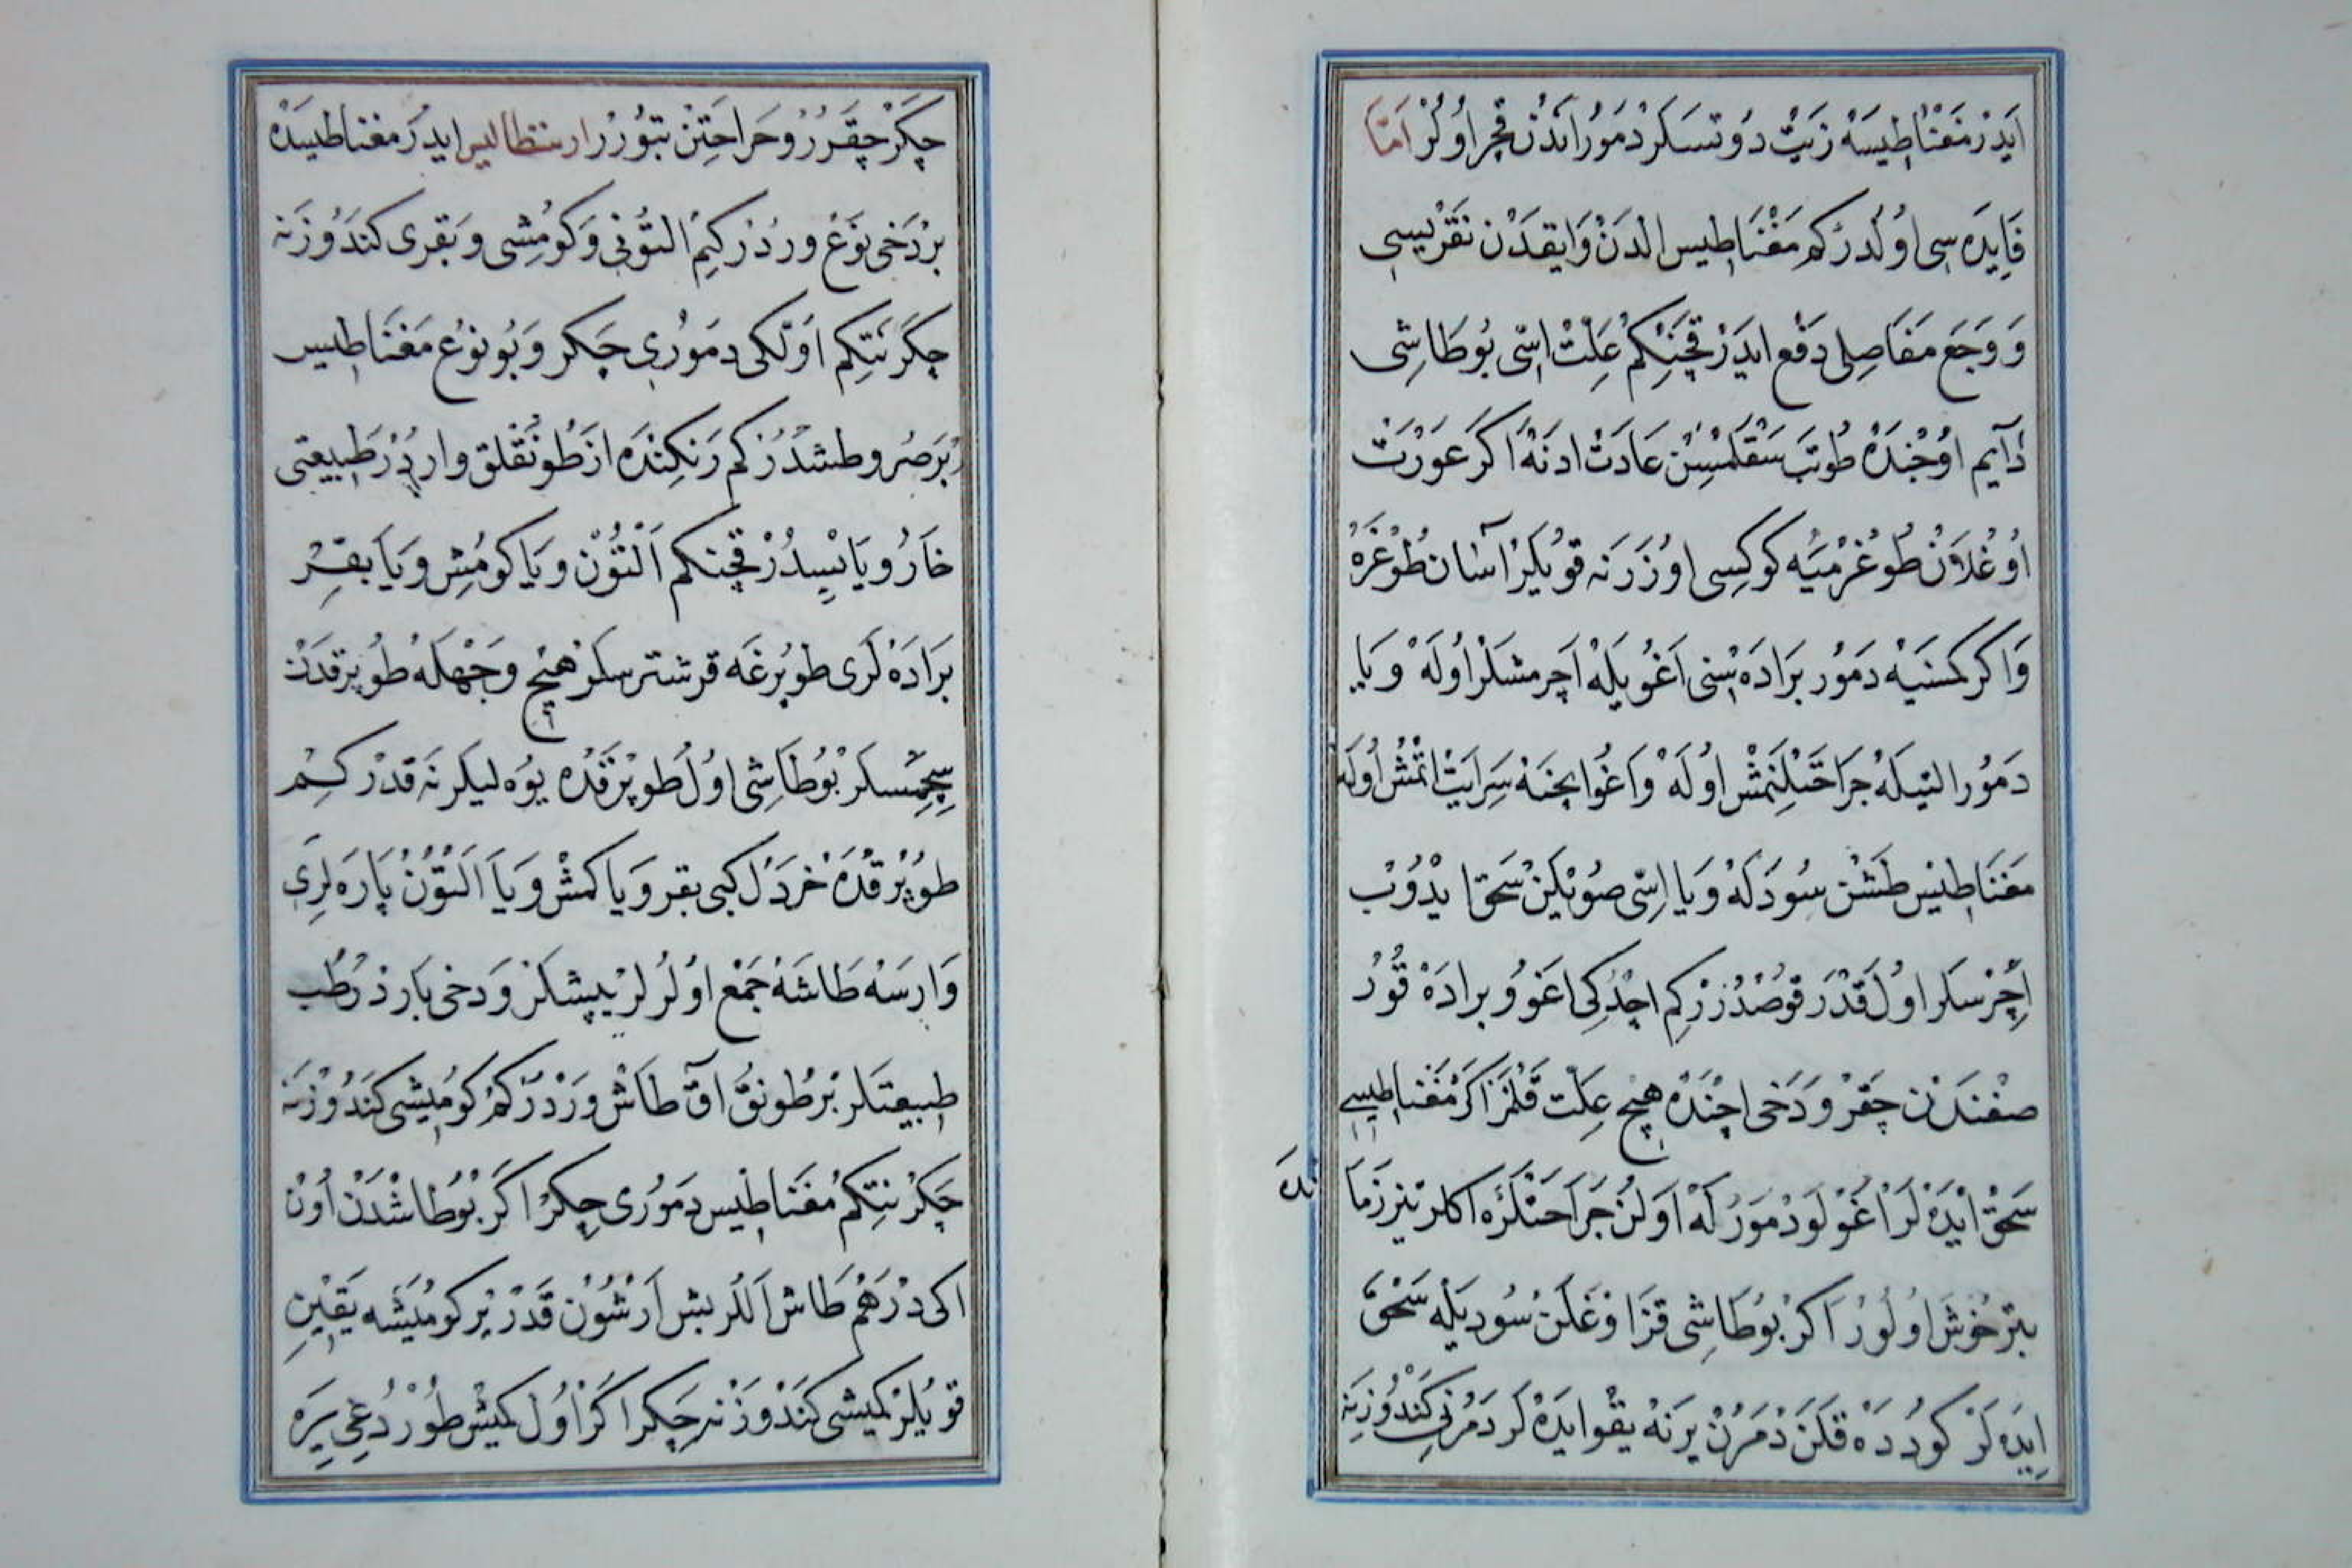 ايدر مغناطيسه زيت دوتسكر دمور اندن قچر اولر امّا
فايده سى اولدر كم مغناطيس الدن و ايقدن نقريسى
و وجع مفاصلى دفع ايدر قچنكم علّت اسّى بو طاشى
دايم اوجنده طوتب سقلمسن عادت ادنه اكر عورت
اوغلان طوغرميه كوكسى اوزرنه قويلر آسان طوغره
و اكر كمسيه دمور براده سنى اغو يله اچرمشلر اوله ويا
دمور التيله جراحتلنمش اوله و اغو ايچنه سرايت اتمش اوله
مغناطيس طشن سودله ويا اسّى صويلن سحق ايدوب
اچرسلر اول قدر قوصدرر كم اچدكى اغو و براده قور
صفندن چقر و دخى اچنده هيچ علّت قلمز اكر مغناطيسى
سحق ايده لر اغولو دمورله اولن جراحتلره اكلر تيز زما
نده
بتر خوش اولور اكر بو طاشى قز اوغلن سوديله سحق
ايده لر كودده قلن دمرن يرنه يقو ايده لر دمرنى كندوزنه
چكر چقرر و جراحتن بتورر ارسطاليس ايدر مغناطيسده
بر دخى نوع وردر كيم التونى و كومشى و بقرى كندوزنه
چكر نتكم اولكى دمورى چكر و بو نوع مغناطيس
بر صرو طشدر كم رنكنده از طونقلق واردر طبيعتى
حار و يابسدر قچنكم التون و يا كومش و يا بقر
براده لرى طوپرغه قرشترسلر هيچ وجهله طوپرقدن
سچمسلر بو طاشى اول طوپرقده يوه ليلر نه قدر كم
طوپرقده خردل كبى بقر و يا كمش و يا التون پاره لرى
وارسه طاشه جمع اولرلر يپشلر و دخى بارد رطب
طبيعتلر بر طونق اق طاش وردر كم كومشى كندوزنه
چكر نتكم مغناطيس دمورى چكر اكر بو طاشدن اون
اكى درهم طاش اللر بش ارشون قدر ير كومشه يقين
قويلر كمشى كندوزنه چكر اكر اول كمش طوردغى يره